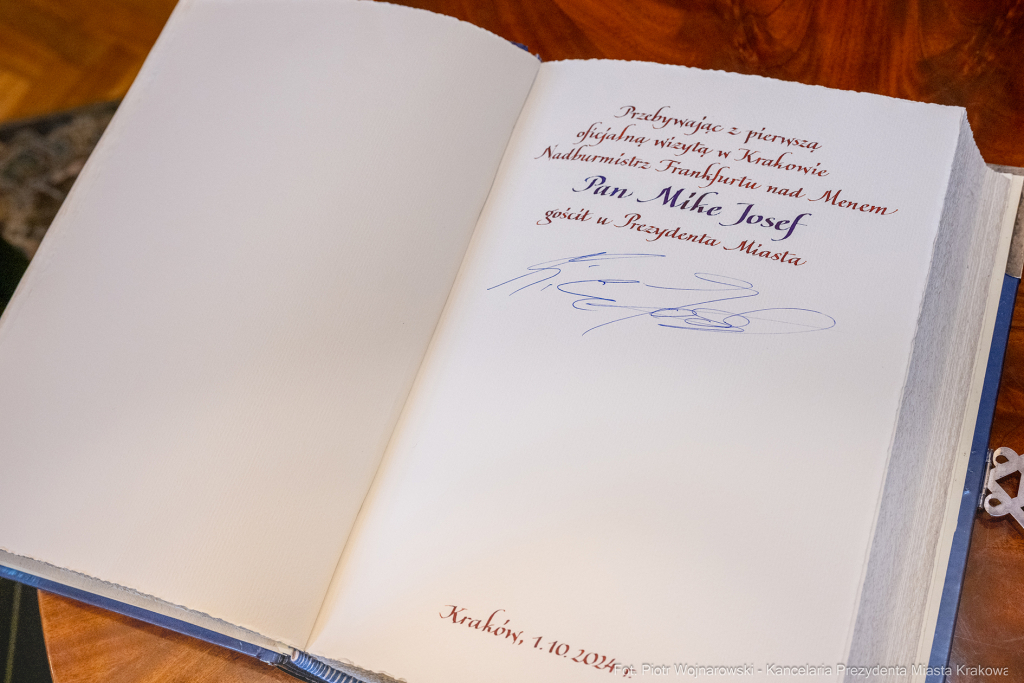 Przebywając z pierwszą
oficjalną wizytą w Krakowie
Nadburmistrz Frankfurtu nad Menem
Pan Mike Josef
gościł u Prezydenta Miasta
Kraków, 1.10.2024 r.
Fot. Piotr Wojnarowski - Kancelaria Prezydenta Miasta Krakowa